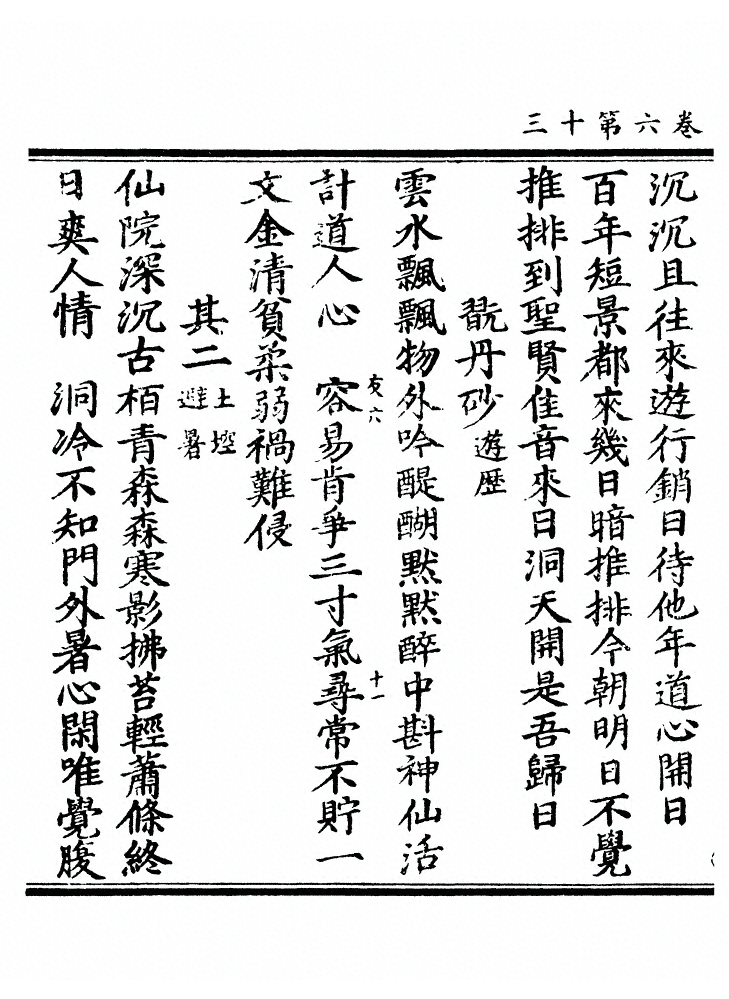 卷六第十三
沉沉且往來遊行銷日待他年道心開日
百年短景都來幾日暗推排今朝明日不覺
推排到聖賢佳音來日洞天開是吾歸日
翫丹砂 遊歷
雲水飄飄物外吟醍醐默默醉中斟神仙活
計道人心　容易肯爭三寸氣尋常不貯一
友六
十一
文金清貧柔弱禍難侵
其二 土堥避暑
仙院深沉古栢青森森寒影拂苔輕蕭條終
日爽人情　洞冷不知門外暑心閑唯覺腹